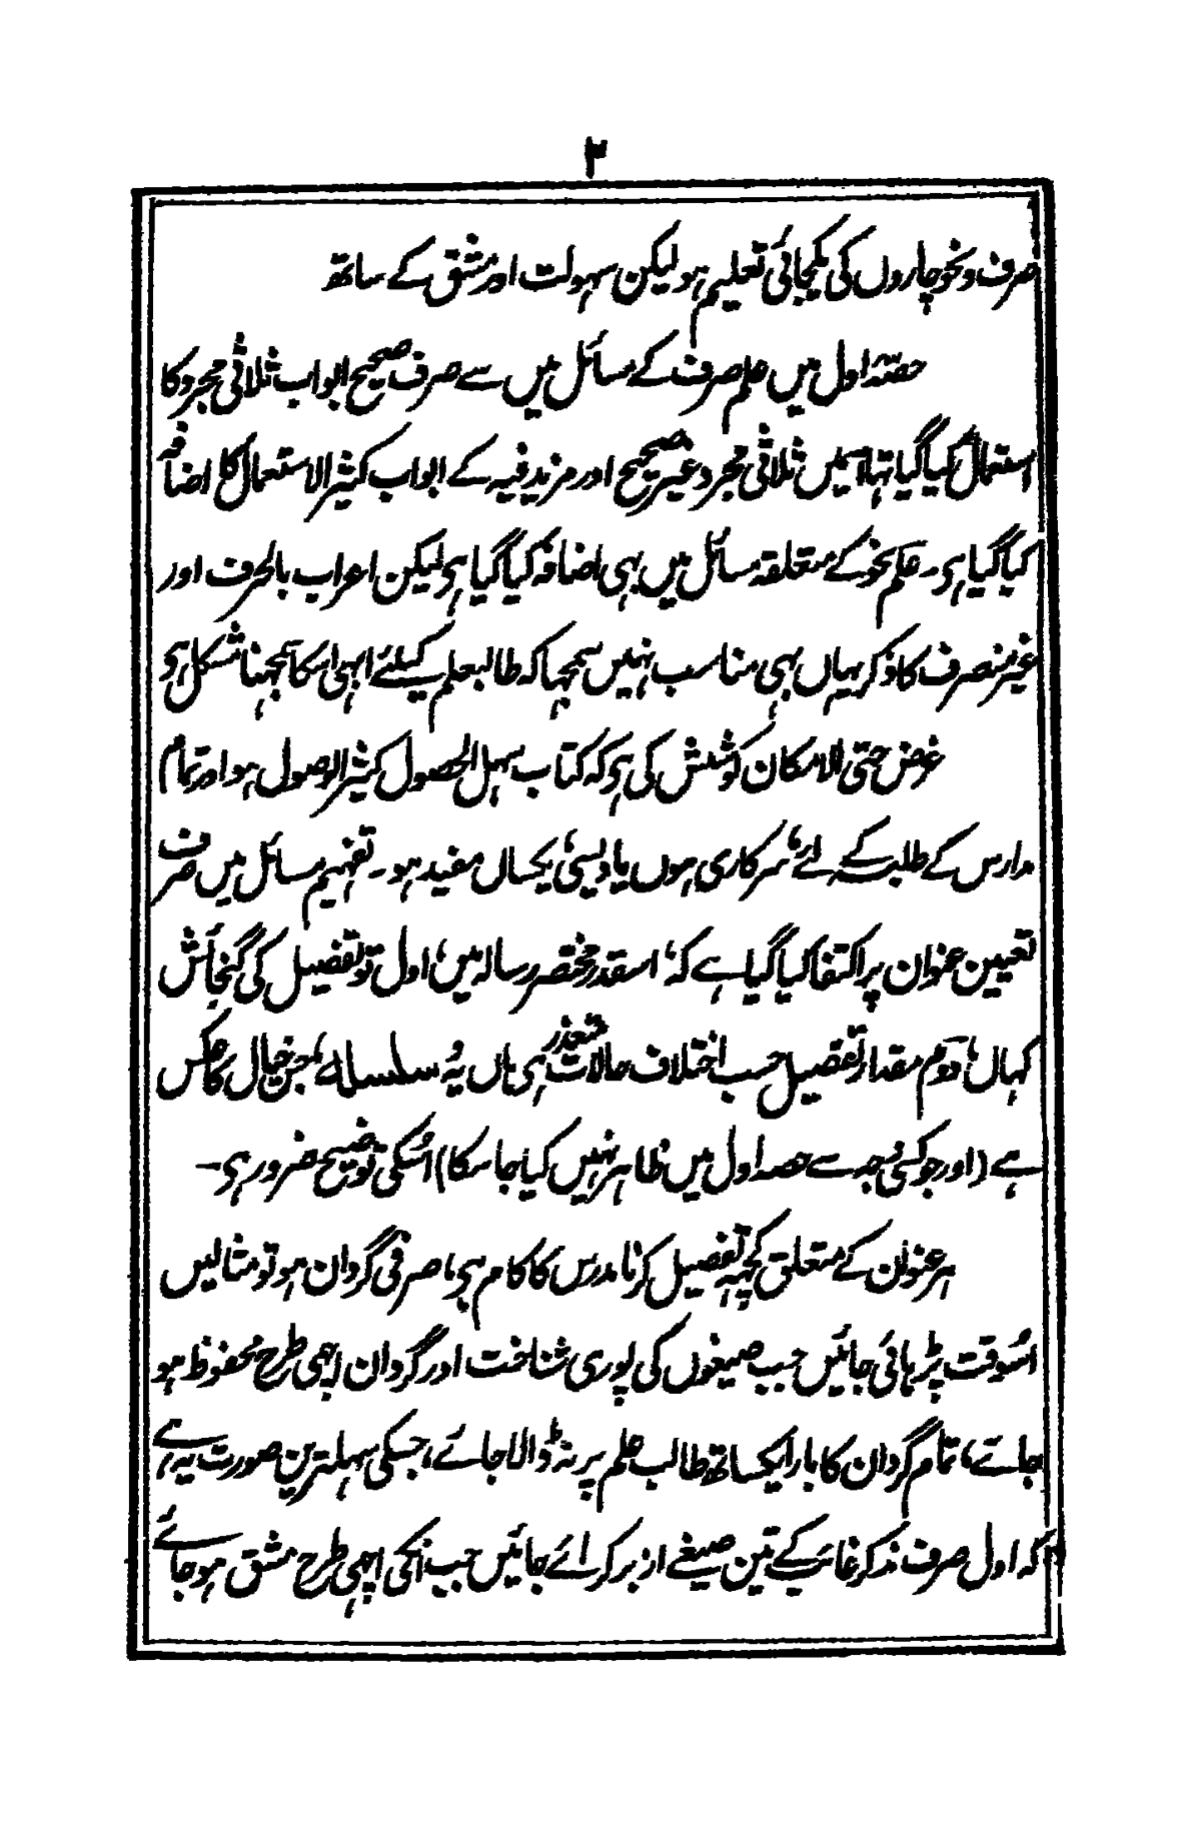 ۳
صرف و نحو چاروں کی یکجائی تعلیم ہو لیکن سہولت اور مشق کے ساتھ
حصّہ اول میں علم صرف کے مسائل میں سے صرف صحیح ابواب ثلاثی مجرد کا
استعمال کیا گیا تہا اسمیں ثلاثی مجرد غیر صحیح اور مزید فیہ کے ابواب کثیر الاستعمال کا اضافہ
کیا گیا ہی۔ علم نحو کے متعلقہ مسائل میں بہی اضافہ کیا گیا ہی لیکن اعراب بالحرف اور
غیر منصرف کا ذکر یہاں بہی مناسب نہیں سمجہا کہ طالبعلم کیلئے ابہی اسکا سمجہنا مشکل ہی
غرض حتی الامکان کوشش کی ہی کہ کتاب سہل الحصول کثیر الوصول ہو اور تمام
مدارس کے طلبہ کے لئے، سرکاری ہوں یا دیسی، یکساں مفید ہو۔ تفہیم مسائل میں صرف
تعیین عنوان پر اکتفا کیا گیا ہے کہ، اسقدر مختصر رسالہ میں، اول تو تفصیل کی گنجائش
کہاں، دوم مقدار تفصیل حسب اختلاف حالات متعذر ہی ہاں یہ سلسلہ، جس خیال کا عکس
ہے (اور جو کسی وجہ سے حصہ اول میں ظاہر نہیں کیا جا سکا) اُسکی توضیح ضرور ہی۔
ہر عنوان کے متعلق کچہہ تفصیل کرنا مدرس کا کام ہی، صرفی گردان ہو تو مثالیں
اُسوقت پڑہائی جائیں جب صیغوں کی پوری شناخت اور گردان اچہی طرح محفوظ ہو
جاے، تمام گردان کا بار ایکساتھ طالب علم پر نہ ڈالا جاے، جسکی سہلترین صورت یہ ہے
کہ اول صرف مذکر غائب کے تین صیغے ازبر کرائے جائیں جب انکی اچہی طرح مشق ہو جائے